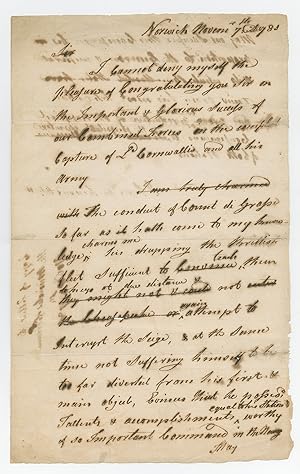 Norwich Novem 7th 1781
Sir
I Cannot deny myself the
pleasure of Congratulating you Sir on
the Important & Glorious Success of
our Combined Forces on the
Capture of Ld Cornwallis and all his
Army
I am truly charmed
with the conduct of Count de Grasse
so far as it hath come to my know
ledge charms me his dropping the
fleet Sufficient to their
at the distance &
they might not &
the Chesapeake or again attempt to
Interrupt the Seige, & at the same
time not Suffering himself to be
so far diverted from his first &
main object, Evinces that he possess'd
Tallents & accomplishments equal to his Station worthy
of so Important Command in the Navy
May